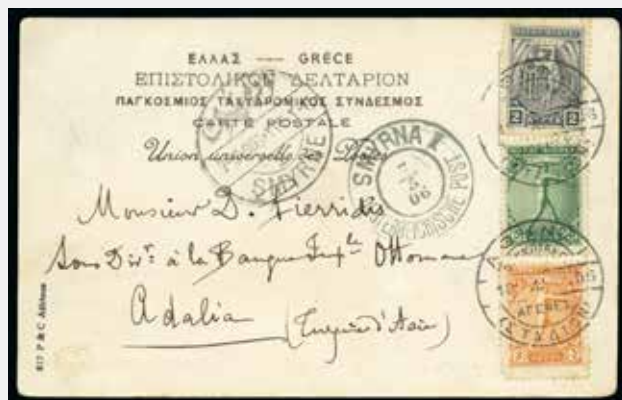 ΕΛΛΑΣ — GRÈCE
ΕΠΙΣΤΟΛΙΚΟΝ ΔΕΛΤΑΡΙΟΝ
ΠΑΓΚΟΣΜΙΟΣ ΤΑΧΥΔΡΟΜΙΚΟΣ ΣΥΝΔΕΣΜΟΣ
CARTE POSTALE
Union universelle des Postes
SMYRNE
SMYRNA I
06
Monsieur D. Pierridis
Sous Dirr. à la Banque Imple Ottomane
Adalia (Turquie d'Asie)
617 P & C Athènes
2
06
ΣΤΑΔΙΟΝ
2